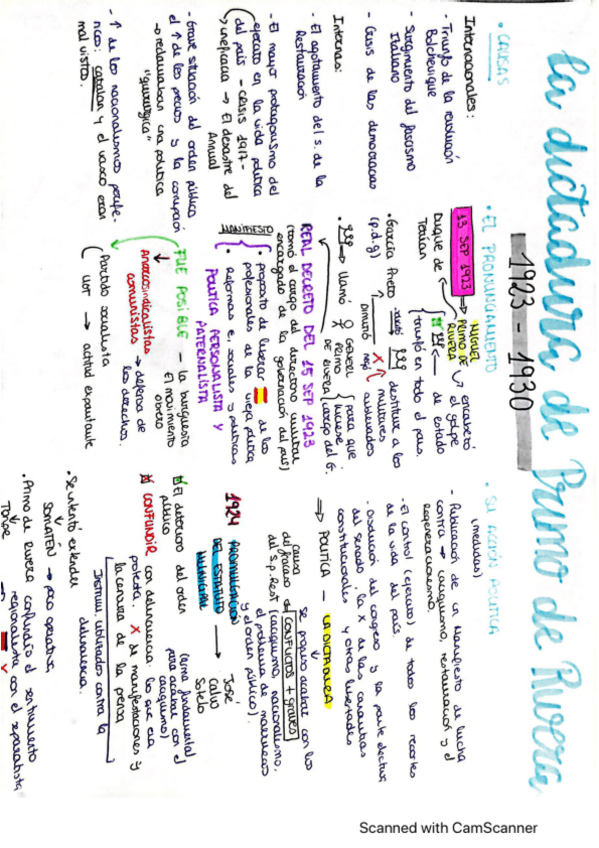 la dictadura de Primo de Rivera
1923 - 1930
• CAUSAS
Internacionales:
- Triunfo de la revolución
Bolchevique
- Surgimiento del fascismo
Italiano
- Crisis de las democracias
Internas:
- El agotamiento del s. de la
Restauración
- El mayor protagonismo del
ejército en la vida política
del país - CRISIS 1917 -
ineficacia → El desastre del
Annual
- Grave situación del orden público
el ↑ de los precios y la corrupción
→ reclamaban una política
"quirúrgica"
- ↑ de los nacionalismos perife-
ricos: catalan y el vasco eran
mal vistos.
• EL PRONUNCIAMIENTO
13 SEP 1923 → MIGUEL
PRIMO DE
RIVERA
encabezó
el golpe
de estado
Duque de
Tetúan
triunfó en todo el país.
• García Prieto
(p.d.g)
destituir a los
militares
sublevados
dimitió
llamó
General
Primo
de Rivera
para que
hiciese
cargo del G.
REAL DECRETO DEL 15 SEP 1923
(tomó el cargo del directorio militar
encargado de la gobernación del país)
MANIFIESTO
• propósito de liberar
de los
profesionales de la vieja política
• Reformas e, sociales y políticas
POLITICA PERSONALISTA Y
PATERNALISTA
FUE POSIBLE - la burguesía
El movimiento
obrero
Anarcosindicalistas
comunistas → defensa de
los derechos.
Partido socialista
UGT → actitud expectante
• SU ACCIÓN POLITICA
(medidas)
- Publicación de un Manifiesto de lucha
contra → caciquismo, restauración y el
regeneracionismo.
- El control (ejército) de todos los
de la vida del país.
- Disolución del congreso y la parte electiva
del senado, la X de las garantías
constitucionales y otras libertades
⇒ POLITICA - LA DICTADURA
se propuso acabar con los
CONFLICTOS + graves
causa
del fracaso
del S.p. Rest
(caciquismo, nacionalismo,
el problema de marruecos
y el orden público).
1924 PROMULGACIÓN
DEL ESTATUTO
MUNICIPAL
→ José
Calvo
Sotelo
(tema fundamental
para acabar con el
caciquismo)
El deterioro del orden
público
CONFUNDIR con delincuencia lo que era
protesta. X de manifestaciones y
la censura de la prensa
Instrum. utilizados contra la
delincuencia.
• Se intentó extender
SOMATÉN → poco operativa
• Primo de Rivera confundió el sentimiento
regionalista con el separatista
Scanned with CamScanner